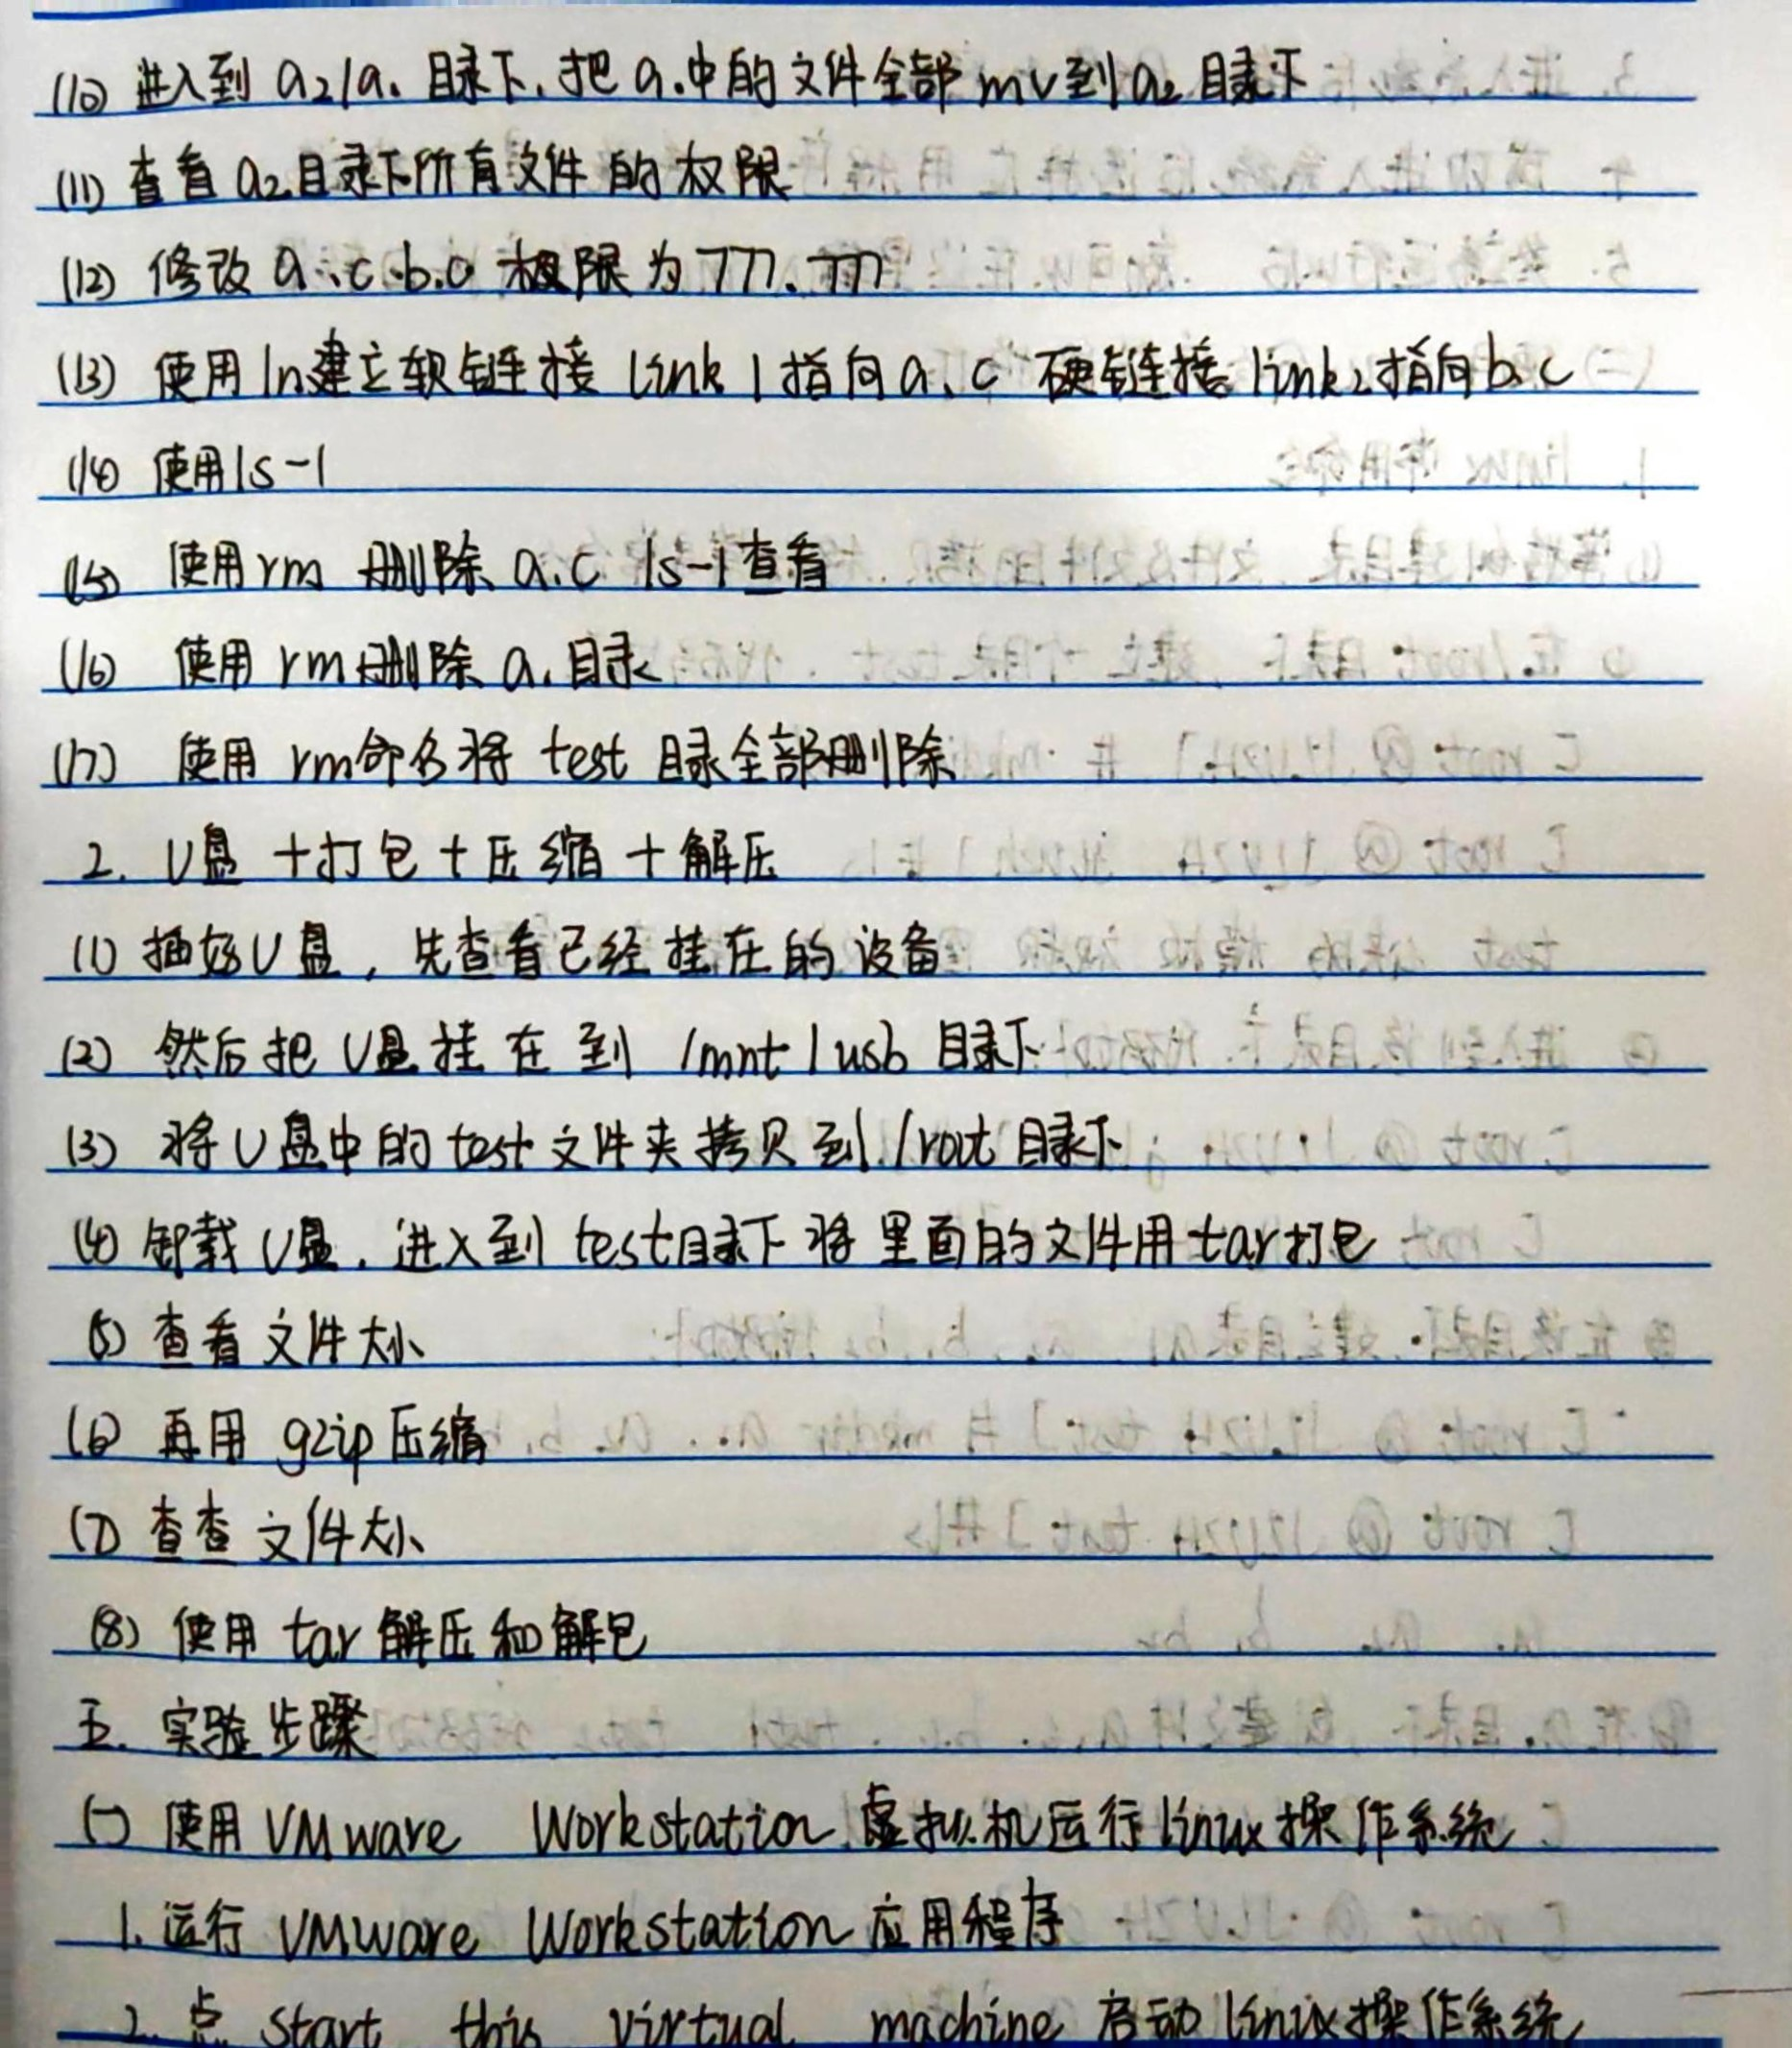 (10) 进入到 a2/a1 目录下，把 a1中的文件全部 mv到 a2 目录下
(11) 查看 a2目录下所有文件的权限
(12) 修改 a.c b.c 权限为 777、777
(13) 使用ln建立软链接 link1指向a.c 硬链接link2指向b.c
(14) 使用ls-l
(15) 使用rm 删除 a.c ls-l查看
(16) 使用 rm删除 a1目录
(17) 使用 rm命名将 test 目录全部删除
2. U盘 + 打包 + 压缩 + 解压
(1) 插好U盘，先查看已经挂在的设备
(2) 然后把 U盘挂在到 /mnt/usb 目录下
(3) 将U盘中的test文件夹拷贝到/root目录下
(4) 卸载U盘，进入到 test目录下将里面的文件用tar打包
(5) 查看文件大小
(6) 再用 gzip压缩
(7) 查查文件大小
(8) 使用 tar 解压和解包
五. 实验步骤
(一) 使用 VMware Workstation 虚拟机运行linux操作系统
1. 运行 VMware Workstation 应用程序
2. 点 start this virtual machine 启动linux操作系统